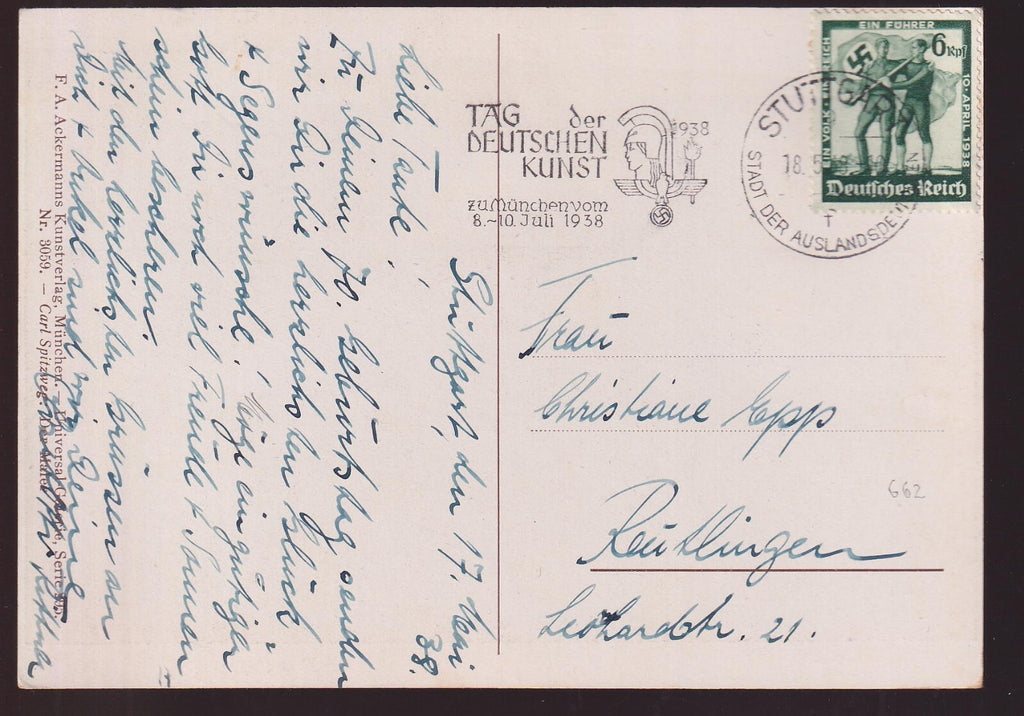 Stuttgart, den 17. Mai
38.
Liebe Tante,
Zu Deinem 70. Geburtstag senden
wir Dir die herzlichsten Glück
+ Segenswünsche! Möge ein gütiger
Gott Dir noch viel Freude + Sonnen
schein bescheren.
Mit den herzlichsten Grüssen an
Dich + Onkel sind wir Deine
F. A. Ackermanns Kunstverlag, München. — Universal-Galerie, Serie
Nr. 3059. — Carl Spitzweg: Der Maler
TAG der
DEUTSCHEN
KUNST
1938
zu München vom
8.-10. Juli 1938
STUTTGART
18. 5.
STADT DER AUSLANDSDEU
EIN VOLK EIN REICH
EIN FÜHRER
10. APRIL 1938
6 Rpf
Deutsches Reich
Frau
Christiane Epp
Reutlingen
Leohardstr. 21.
662